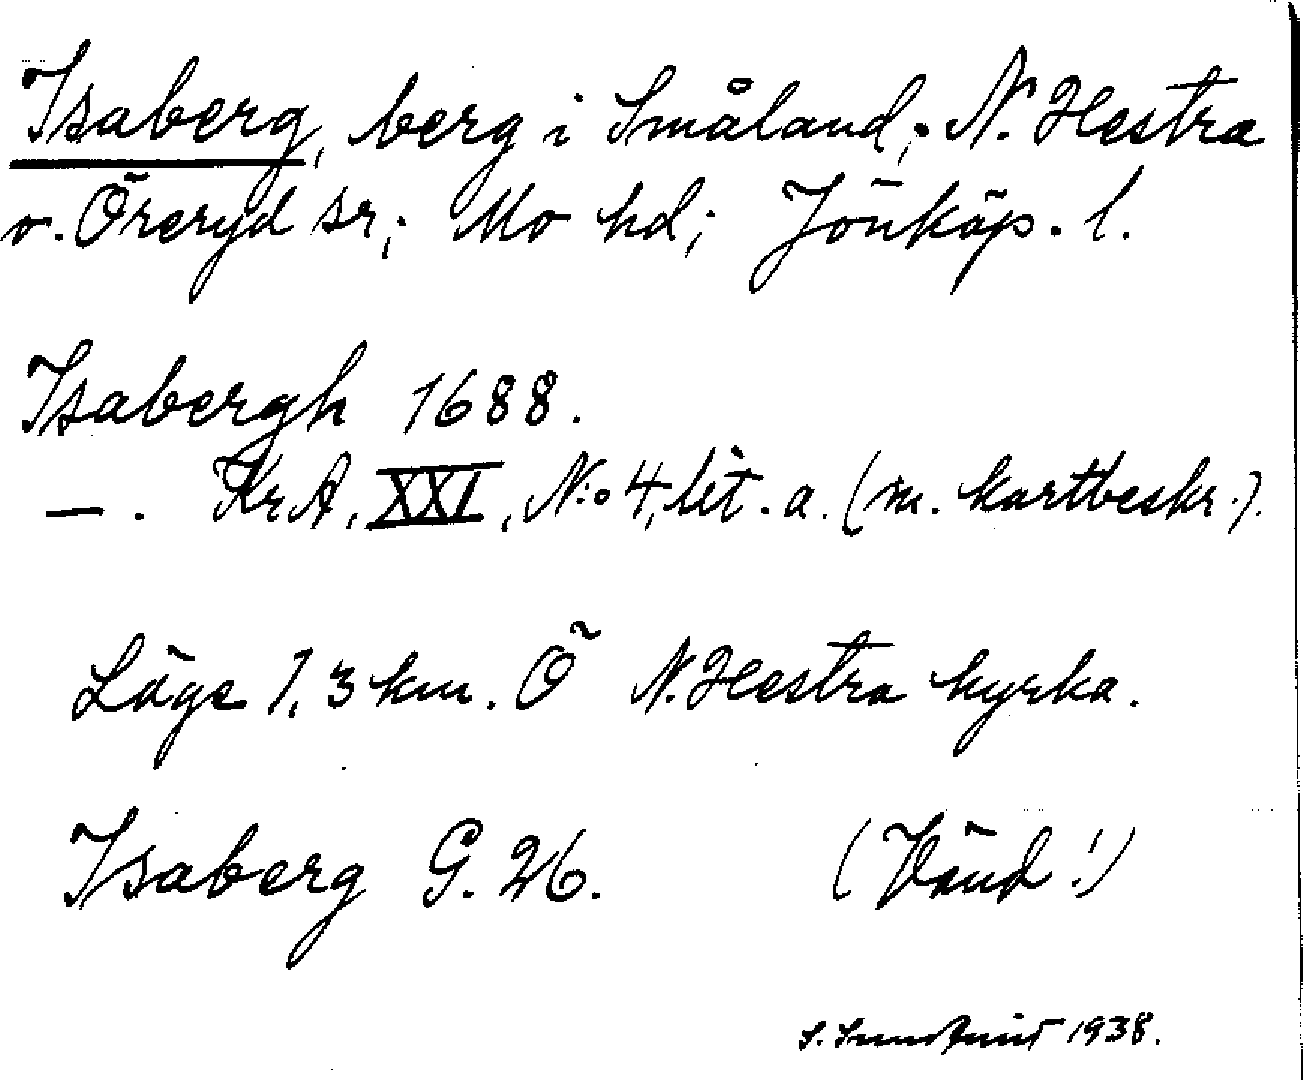 Isaberg, berg i Småland; N. Hestra
o. Öreryd sr; Mo hd; Jönköp. l.
Isabergh 1688.
— . KrA, XXI, N:o 4, lit. a. (m. kartbeskr.).
Läge 1,3 km. Ö N. Hestra kyrka.
Isaberg G. 26. (Vänd!)
S. 1938.